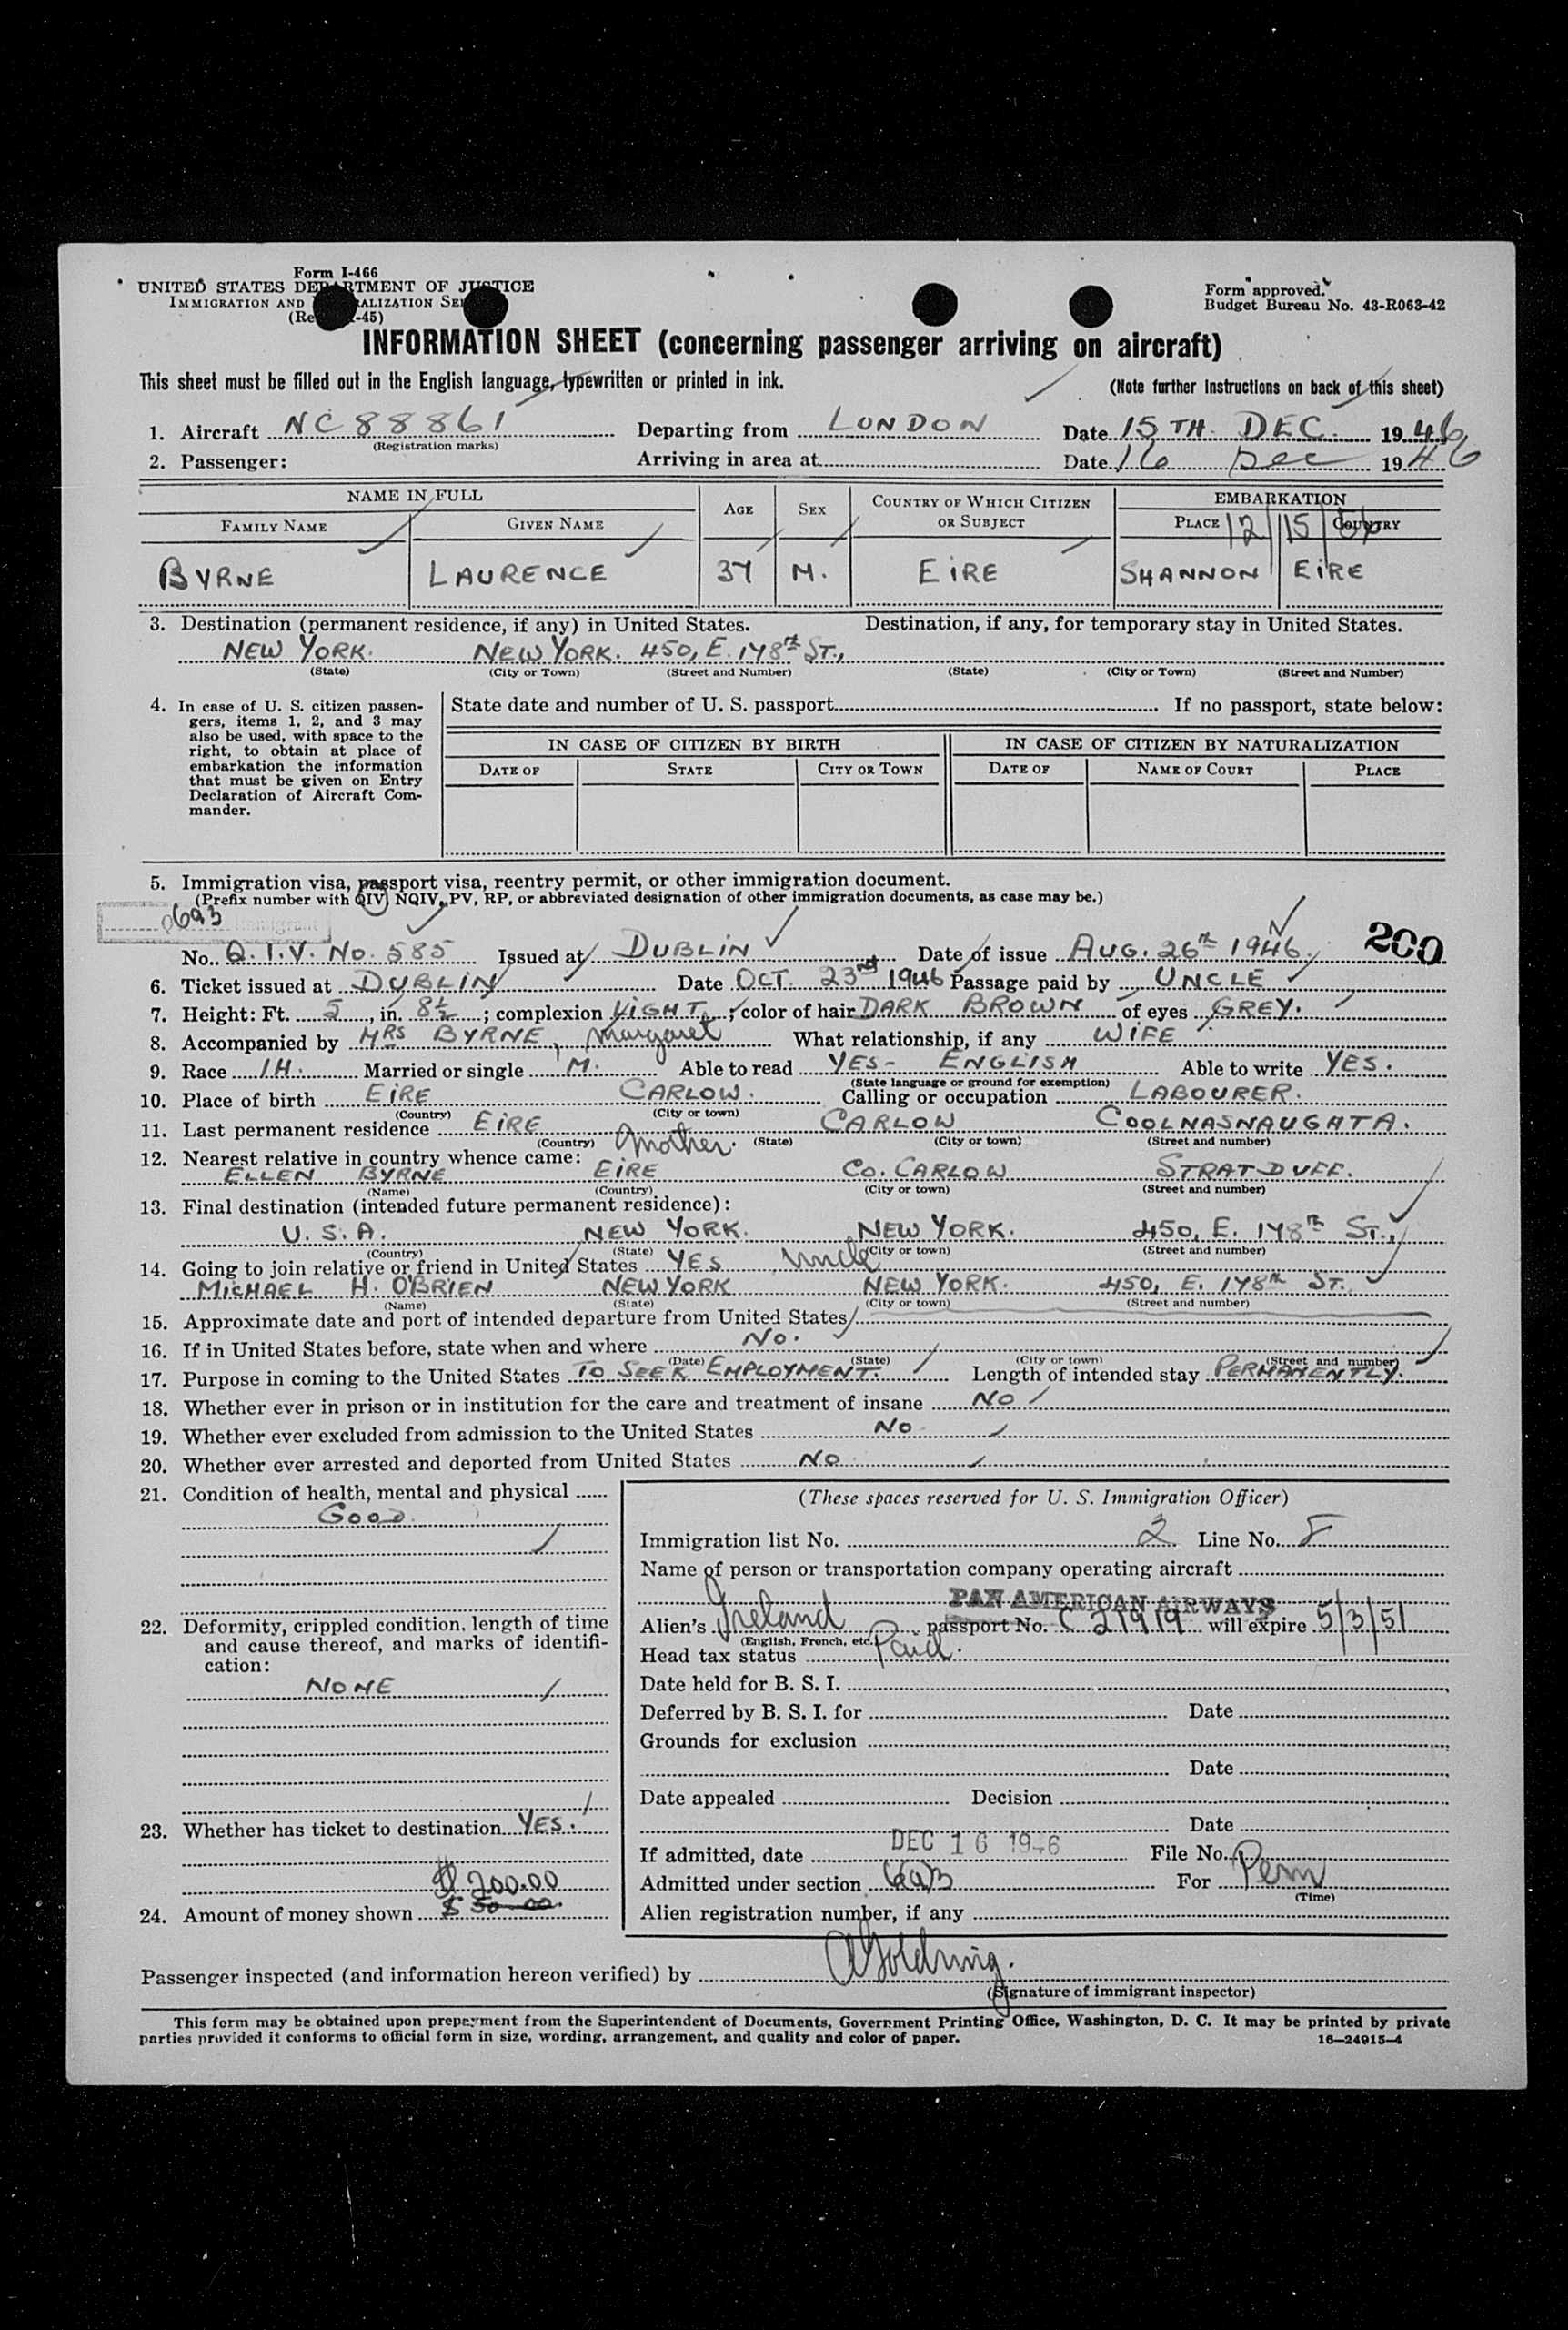 Form I-466
UNITED STATES DEPARTMENT OF JUSTICE
IMMIGRATION AND NATURALIZATION SERVICE
Form approved.
Budget Bureau No. 43-R063-42
INFORMATION SHEET (concerning passenger arriving on aircraft)
This sheet must be filled out in the English language, typewritten or printed in ink. (Note further instructions on back of this sheet)
1. Aircraft NC 88861 Departing from LONDON Date 15TH. DEC. 1946
(Registration marks)
2. Passenger: Arriving in area at Date 16 Dec 1946
NAME IN FULL AGE SEX COUNTRY OF WHICH CITIZEN OR SUBJECT EMBARKATION
FAMILY NAME GIVEN NAME PLACE COUNTRY
12/15/
BYRNE LAURENCE 37 M. EIRE SHANNON EIRE
3. Destination (permanent residence, if any) in United States. Destination, if any, for temporary stay in United States.
NEW YORK. NEW YORK. 450, E. 148th ST.,
(State) (City or Town) (Street and Number) (State) (City or Town) (Street and Number)
4. In case of U. S. citizen passengers, items 1, 2, and 3 may also be used, with space to the right, to obtain at place of embarkation the information that must be given on Entry Declaration of Aircraft Commander.
State date and number of U. S. passport If no passport, state below:
IN CASE OF CITIZEN BY BIRTH IN CASE OF CITIZEN BY NATURALIZATION
DATE OF STATE CITY OR TOWN DATE OF NAME OF COURT PLACE
5. Immigration visa, passport visa, reentry permit, or other immigration document.
(Prefix number with QIV, NQIV, PV, RP, or abbreviated designation of other immigration documents, as case may be.)
200
No. Q.I.V. No. 585 Issued at DUBLIN Date of issue AUG. 26th 1946.
6. Ticket issued at DUBLIN Date OCT. 23rd 1946 Passage paid by UNCLE
7. Height: Ft. 5, in. 8½; complexion LIGHT; color of hair DARK BROWN of eyes GREY.
8. Accompanied by MRS BYRNE, Margaret What relationship, if any WIFE
9. Race IH. Married or single M. Able to read YES - ENGLISH Able to write YES.
(State language or ground for exemption)
10. Place of birth EIRE CARLOW. Calling or occupation LABOURER.
(Country) (City or town)
11. Last permanent residence EIRE CARLOW COOLNASNAUGHTA.
(Country) (State) (City or town) (Street and number)
12. Nearest relative in country whence came: Mother.
ELLEN BYRNE EIRE CO. CARLOW STRATDUFF.
(Name) (Country) (City or town) (Street and number)
13. Final destination (intended future permanent residence):
U.S.A. NEW YORK. NEW YORK. 450, E. 148th ST.,
(Country) (State) (City or town) (Street and number)
14. Going to join relative or friend in United States YES Uncle
MICHAEL H. O'BRIEN NEW YORK NEW YORK. 450, E. 148th ST.
(Name) (State) (City or town) (Street and number)
15. Approximate date and port of intended departure from United States
16. If in United States before, state when and where No.
(Date) (State) (City or town) (Street and number)
17. Purpose in coming to the United States TO SEEK EMPLOYMENT. Length of intended stay PERMANENTLY.
18. Whether ever in prison or in institution for the care and treatment of insane NO
19. Whether ever excluded from admission to the United States NO
20. Whether ever arrested and deported from United States NO
21. Condition of health, mental and physical
GOOD.
22. Deformity, crippled condition, length of time and cause thereof, and marks of identification:
NONE
23. Whether has ticket to destination YES.
$ 200.00
24. Amount of money shown $ 50-00.
(These spaces reserved for U. S. Immigration Officer)
Immigration list No. 2 Line No. 8
Name of person or transportation company operating aircraft
PAN AMERICAN AIRWAYS
Alien's Ireland passport No. C 21919 will expire 5/3/51
(English, French, etc.)
Head tax status Paid.
Date held for B. S. I.
Deferred by B. S. I. for Date
Grounds for exclusion
Date
Date appealed Decision
Date
If admitted, date DEC 16 1946 File No.
Admitted under section 6(a)3 For Perm
(Time)
Alien registration number, if any
Passenger inspected (and information hereon verified) by AGoldring.
(Signature of immigrant inspector)
This form may be obtained upon prepayment from the Superintendent of Documents, Government Printing Office, Washington, D. C. It may be printed by private
parties provided it conforms to official form in size, wording, arrangement, and quality and color of paper. 16—24915-4